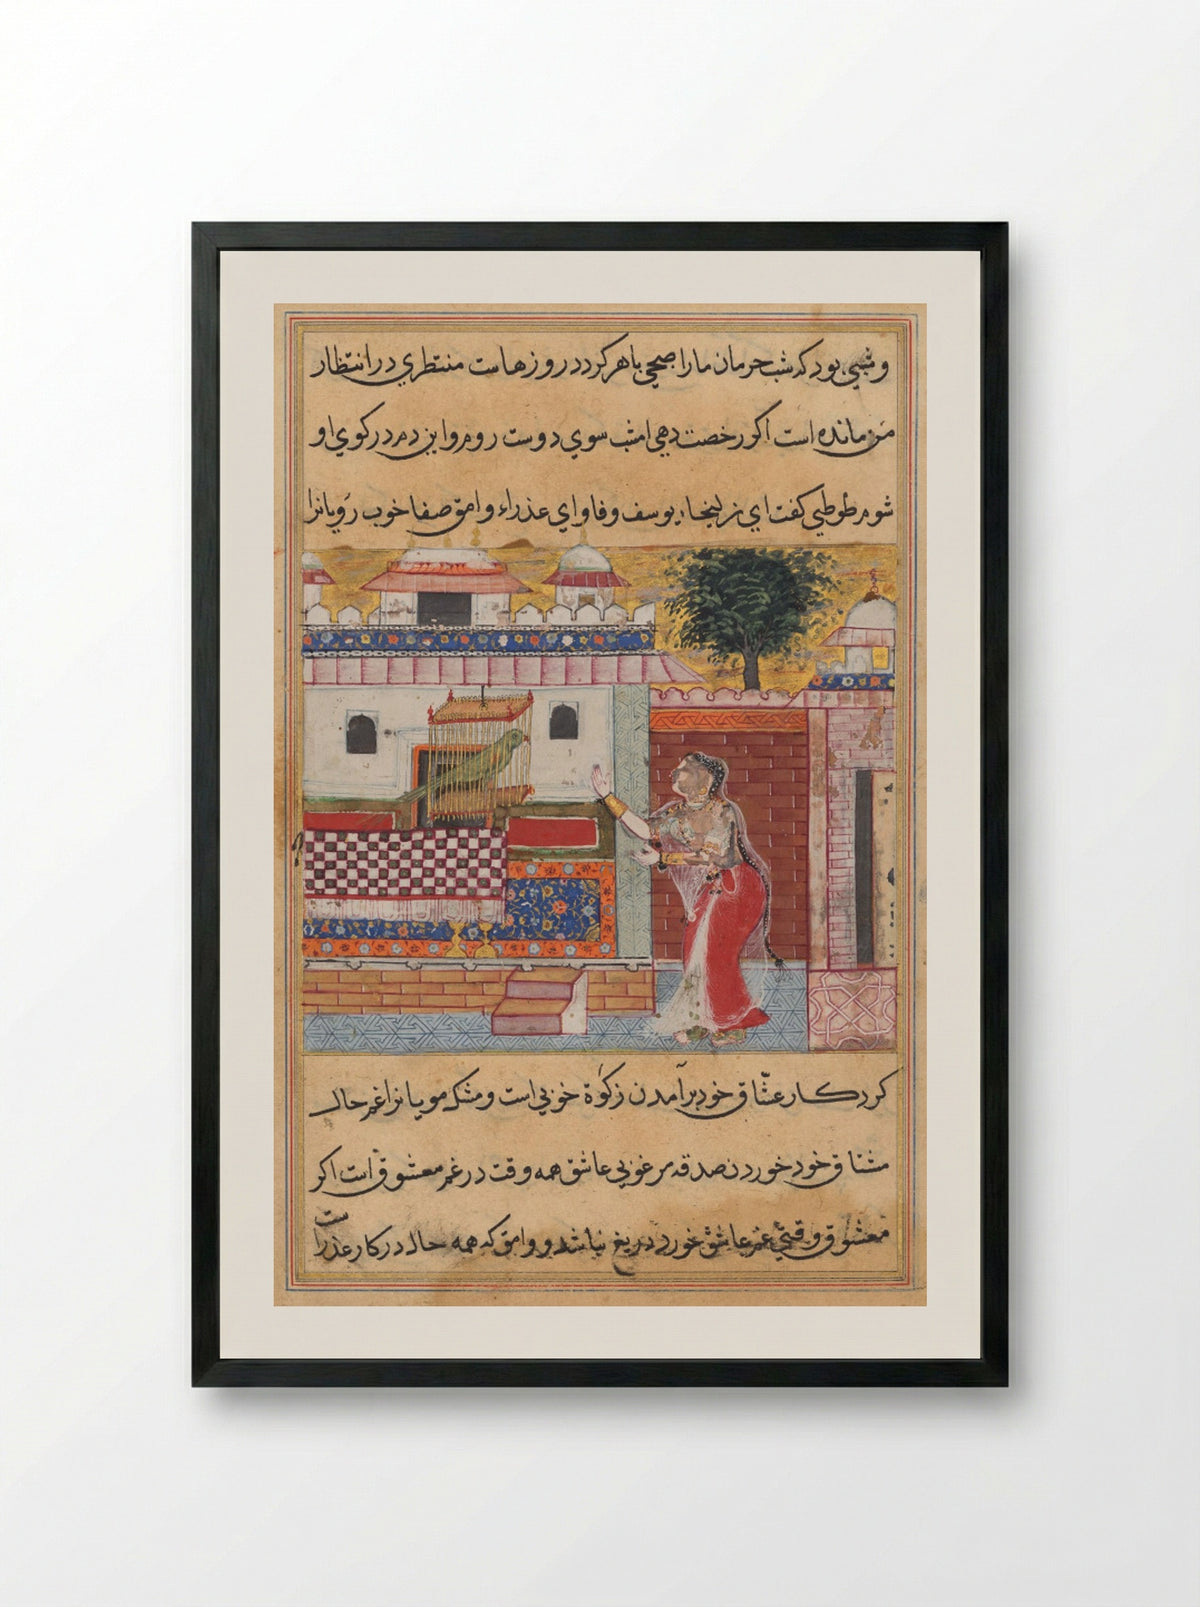 و شبي بود که شب حرمان ما را صبحي باهر کردد روزهاست منتظري در انتظار
من مانده است اکر رخصت دهي امشب سوي دوست روم و اين دم در کوي او
شوم طوطي کفت اي زليخاء يوسف وفا و اي عذراء وامق صفا خوب رويانرا
کرد کار عشاق خود برآمدن زکوة خوبي است و مشک مويانرا غم حال
مشتاق خود خوردن صدقه مرغوبي عاشق همه وقت در غم معشوق است اکر
معشوق وقتي غم عاشق خورد دريغ نباشد و وامق که همه حال در کار عذراست